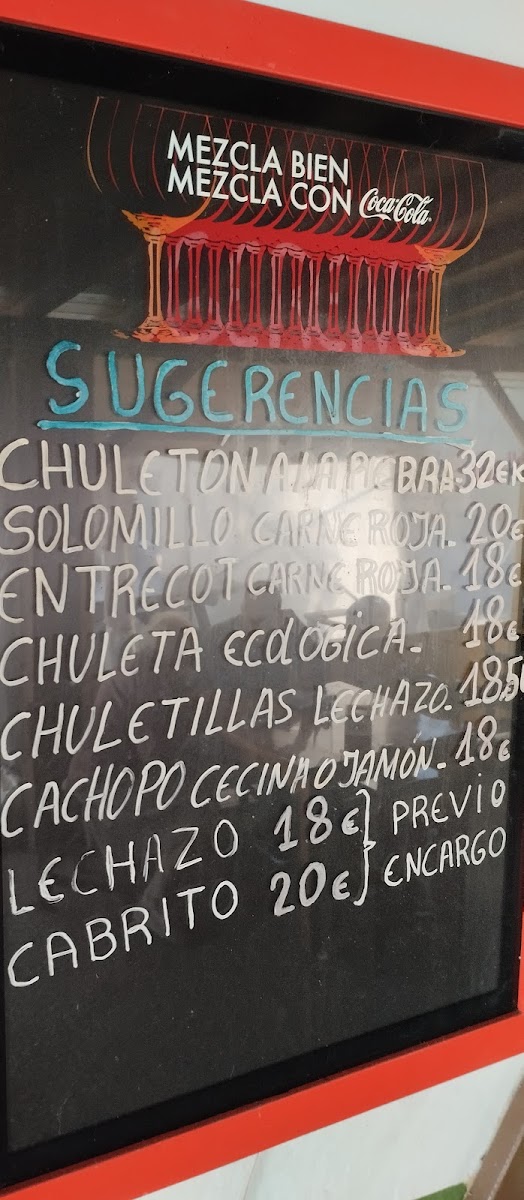 MEZCLA BIEN
MEZCLA CON Coca-Cola
SUGERENCIAS
CHULETÓN A LA PIEDRA 32€K
SOLOMILLO CARNE ROJA. 20€
ENTRECOT CARNE ROJA. 18€
CHULETA ECOLOGICA. 18€
CHULETILLAS LECHAZO. 18,50
CACHOPO CECINA O JAMÓN. 18€
LECHAZO 18€ } PREVIO
CABRITO 20€ } ENCARGO